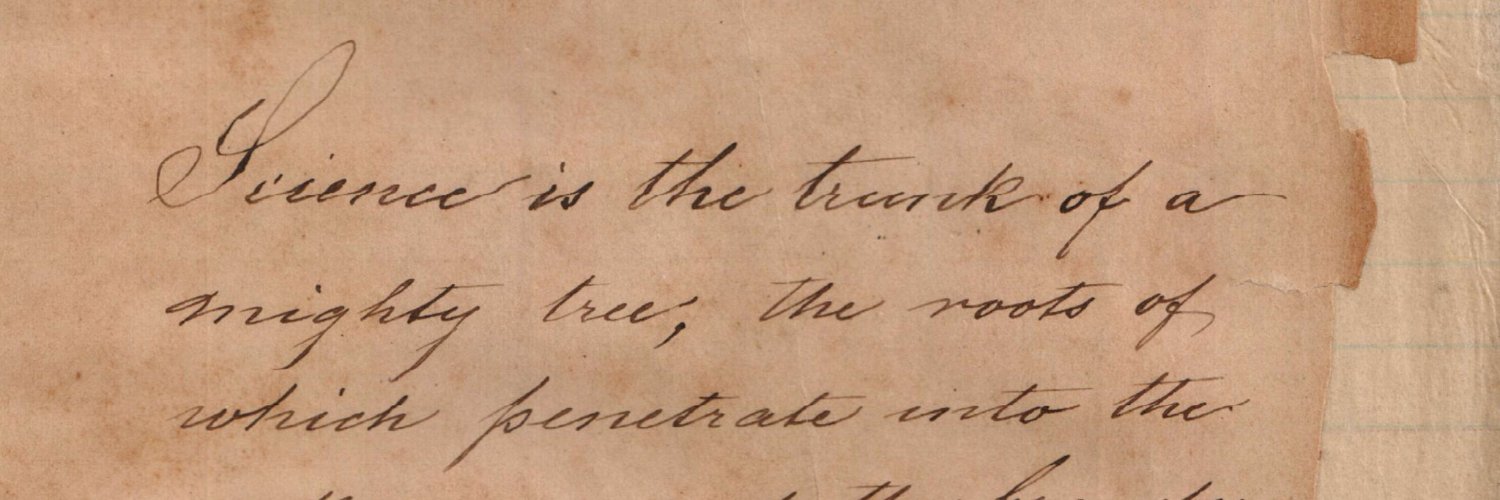 Science is the trunk of a
mighty tree, the roots of
which penetrate into the